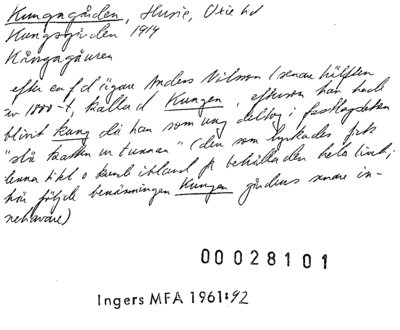 Kungagården, Husie, Oxie hd
Kungsgården 1914
Kångagåuren
efter en f d ägare Anders Nilsson (senare hälften
av 1800-t, kallad Kungen, eftersom han hade
blivit kung då han som ung deltog i fastlagsleken
"slå katten ur tunnan" (den som lyckades fick
denna titel o kunde ibland få behålla den hela livet;
här följde benämningen Kungen gårdens senare in-
nehavare)
00028101
Ingers MFA 1961:92